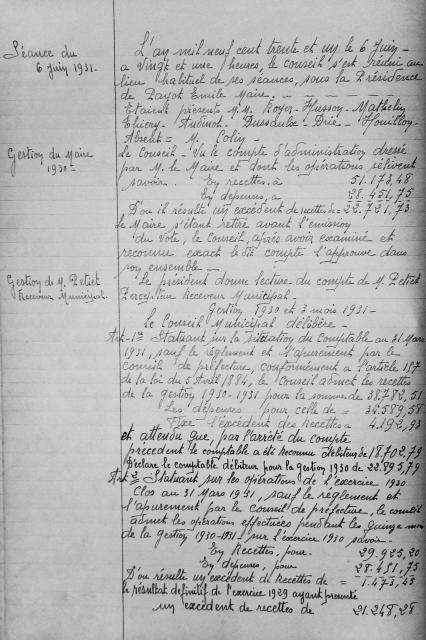 Séance du
6 Juin 1931.
L'an mil neuf cent trente et un le 6 Juin -
a vingt et une heures, le conseil s'est réuni au
lieu habituel de ses séances, sous la Présidence
de Payot Emile Maire.
Etaient présents M.M. Royer - Husson - Mathelin
Thiery - Audinot - Dussaulx - Drié - Houillon -
Absent = M. Colin
Gestion du Maire
1930
Le Conseil - Vu le compte d'administration dressé
par M. le Maire et dont les opérations s'élèvent
savoir. En recettes à 51.173,48
En dépenses, à 28.451,75
D'où il résulte un excédent de recettes de = 22.721,73
le Maire s'étant retiré avant l'émission
du vote, le Conseil, après avoir examiné et
reconnu exact le dit compte l'approuve dans
son ensemble -
Gestion de M. Petiet
Receveur Municipal.
Le président donne lecture du compte de M. Petiet
Percepteur Receveur Municipal -
Gestion 1930 et 3 mois 1931 -
Le Conseil Municipal délibère -
Art - 1er Statuant sur la situation du Comptable au 31 Mars
1931, sauf le règlement et l'apurement par le
conseil de préfecture, conformément à l'article 157
de la loi du 5 Avril 1884, le Conseil admet les recettes
de la gestion 1930-1931 pour la somme de 38.782,51
Les dépenses pour celle de = 34.589,58
Fixe l'excédent des Recettes à 4.192,93
et attendu que, par l'arrêté du compte
précédent le comptable a été reconnu débiteur de 18.702,79
Déclare le comptable débiteur pour la gestion 1930 de 22.895,79
Art 2 = Statuant sur les opérations de l'exercice 1930
Clos au 31 Mars 1931, sauf le règlement et
l'apurement par le conseil de préfecture, le conseil
admet les opérations effectuées pendant les quinze mois
de la gestion 1930-1931 sur l'exercice 1930 savoir -
En Recettes, pour - 29.925,20
En dépenses, pour 28.451,75
D'où résulte un excédent de Recettes de = 1.473,45
le résultat définitif de l'exercice 1929 ayant présenté
un excédent de recettes de 21.248,28